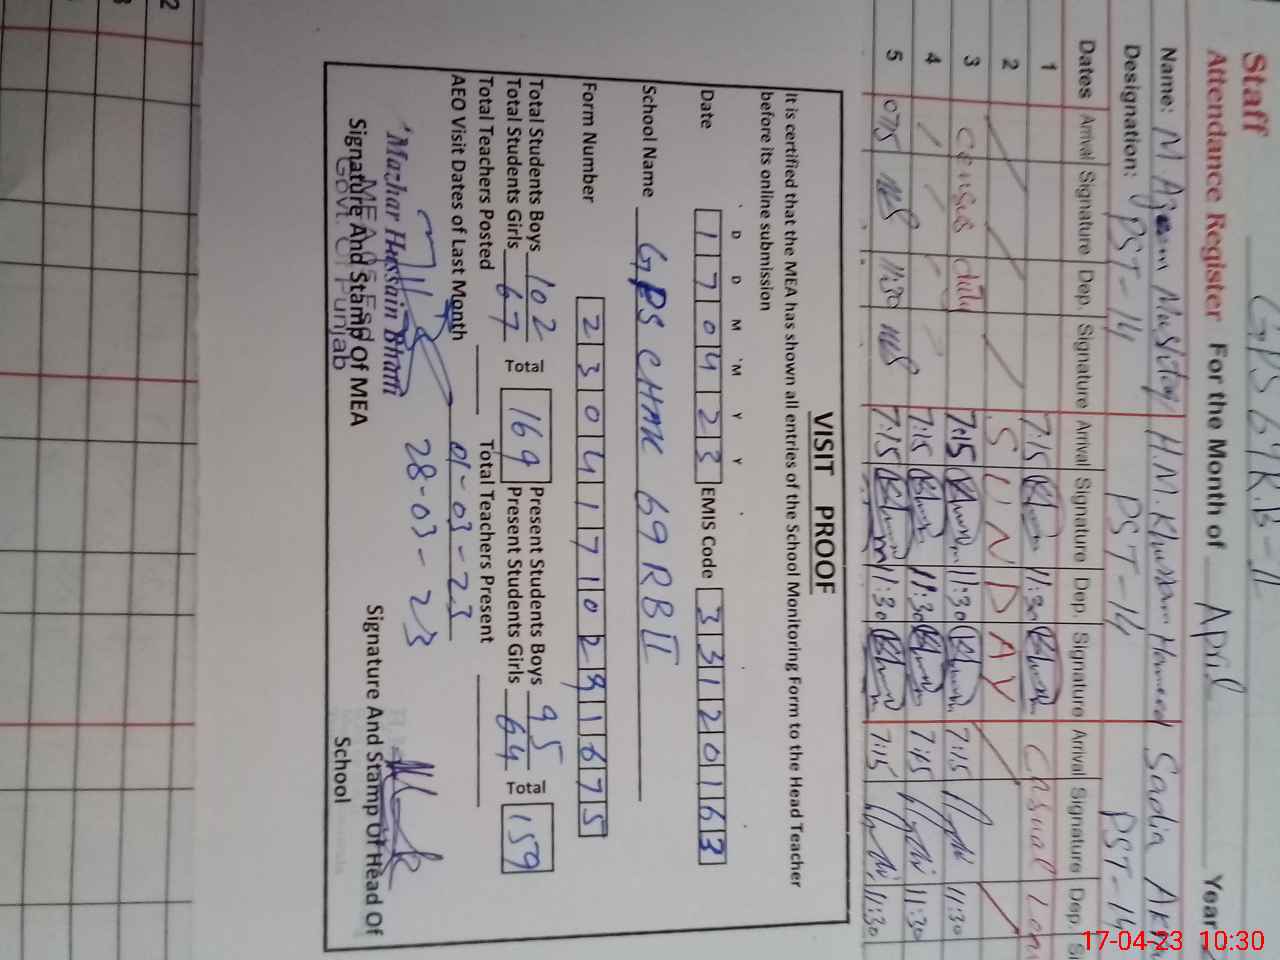 GPS 69 R.B-II
Staff
Attendance Register For the Month of April Year
Name: M Azeem Mushtaq H.M. Khurram Hameed Sadia
Designation: PST-14 PST-14 PST-14
Dates Arrival Signature Dep. Signature Arrival Signature Dep. Signature Arrival Signature Dep.
1 7:15 11:30 Casual
2 SUNDAY
3 Census duty 7:15 11:30 7:15 11:30
4 7:15 11:30 7:15 11:30
5 0715 11:30 7:15 11:30 7:15 11:30
VISIT PROOF
It is certified that the MEA has shown all entries of the School Monitoring Form to the Head Teacher
before its online submission
D D M M Y Y
Date 170423 EMIS Code 33120163
School Name GPS CHAK 69 RB II
Form Number 23041710291675
Total Students Boys 102 Total 169 Present Students Boys 95 Total 159
Total Students Girls 67 Present Students Girls 64
Total Teachers Posted Total Teachers Present
AEO Visit Dates of Last Month 01-03-23
28-03-23
Mazhar Hussain Bhatti
MEA
Govt. Of Punjab
Signature And Stamp Of MEA Signature And Stamp Of Head Of
School
2
3
17-04-23 10:30